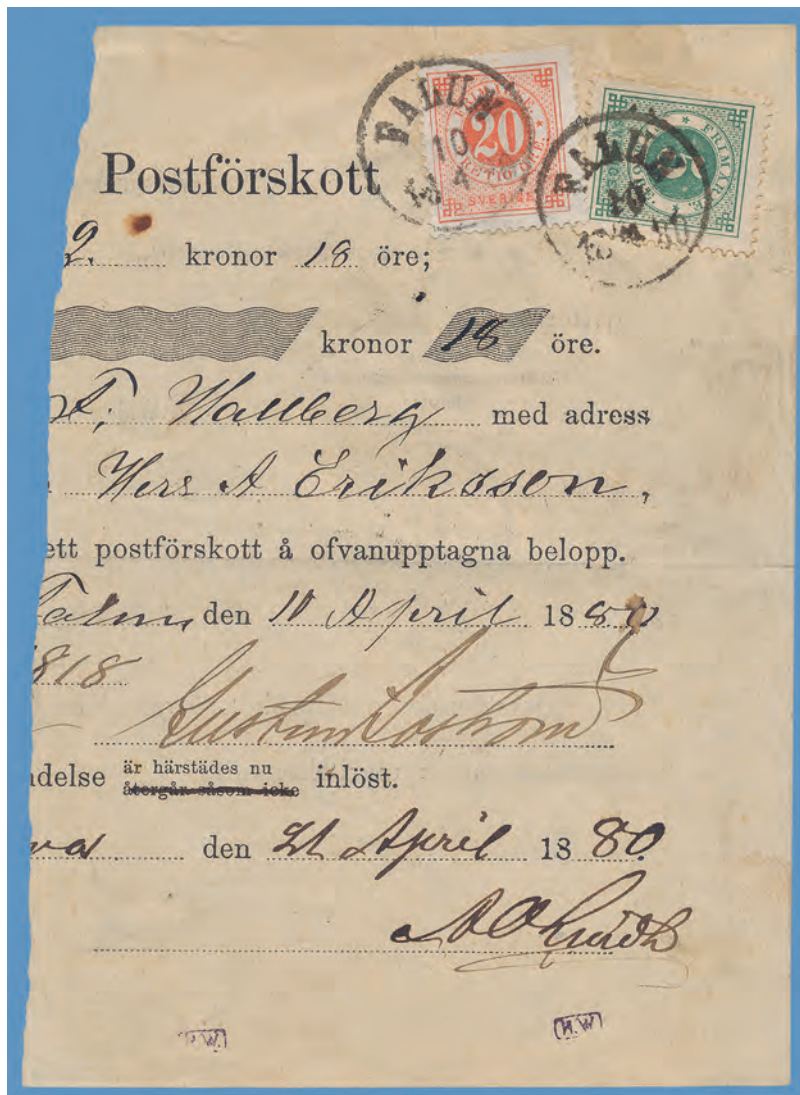 FALUN
10
4
20
SVERIGE
FALUN
10
4 80
FRIMÄRKE
5
Postförskott
2. kronor 18 öre;
kronor 18 öre.
F. Wallberg med adress
Herr A Eriksson,
ett postförskott å ofvanupptagna belopp.
Falun den 10 April 1880
1818
delse är härstädes nu inlöst.
återgår såsom icke
den 21 April 1880.
H.W.
H.W.